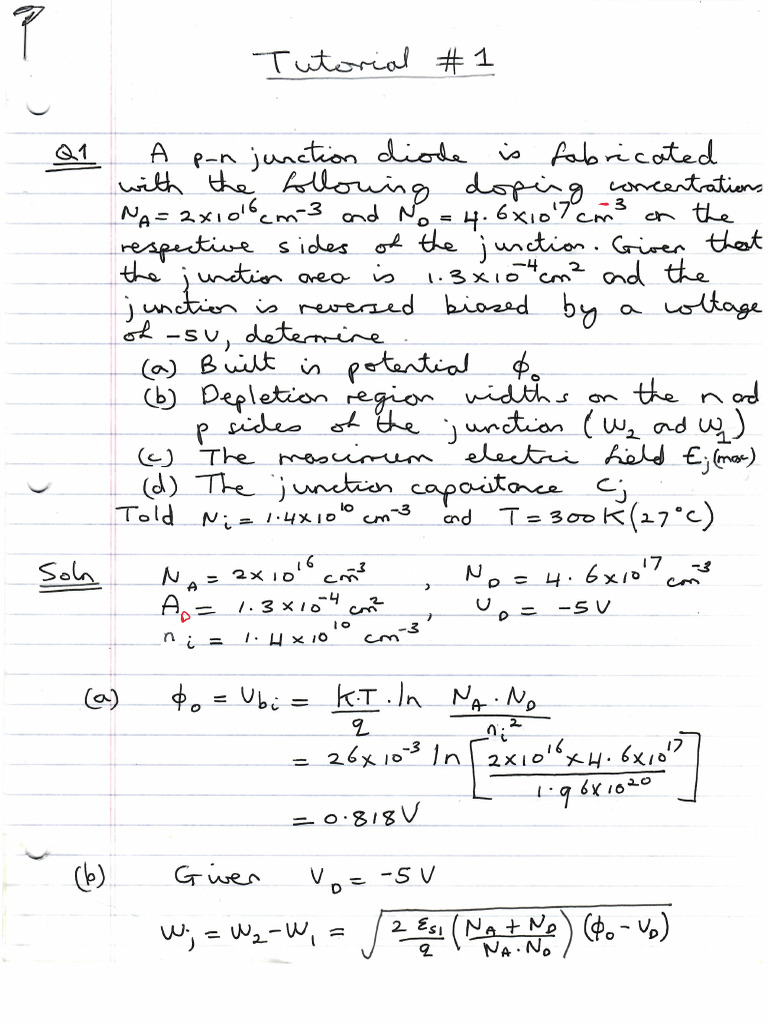 Tutorial # 1
Q1 A p-n junction diode is fabricated
with the following doping concentrations
N_A = 2x10^16 cm^-3 and N_D = 4.6x10^17 cm^-3 on the
respective sides of the junction. Given that
the junction area is 1.3x10^-4 cm^2 and the
junction is reversed biased by a voltage
of -5V, determine.
(a) Built in potential ϕ_o
(b) Depletion region widths on the n ad
p sides of the junction (W_2 ad W_1)
(c) The maximum electric field E_j(max)
(d) The junction capacitance C_j
Told N_i = 1.4x10^10 cm^-3 and T = 300K (27°C)
Soln N_A = 2x10^16 cm^-3 , N_D = 4.6x10^17 cm^-3
A_D = 1.3x10^-4 cm^2 , V_D = -5V
n_i = 1.4x10^10 cm^-3
(a) ϕ_o = V_bi = K.T/q . ln N_A . N_D / n_i^2
= 26x10^-3 ln [2x10^16 x 4.6x10^17 / 1.96x10^20]
= 0.818V
(b) Given V_D = -5V
W_j = W_2 - W_1 = √(2 ε_SI / q (N_A + N_D / N_A . N_D) (ϕ_o - V_D))